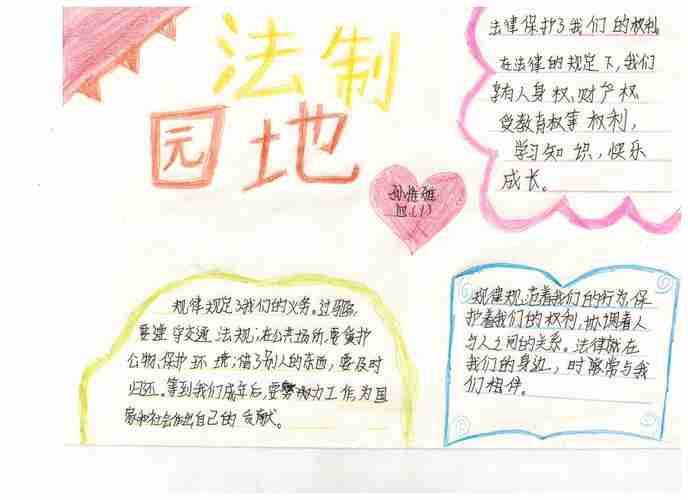 法制
园地
法律保护了我们的权利
在法律的规定下,我们
享有人身权、财产权、
受教育权等权利,
学习知识,快乐
成长。
四(1)
规律规定了我们的义务。过马路,
要遵守交通法规;在公共场所,要爱护
公物、保护环境;借了别人的东西,要及时
归还。等到我们成年后,要努力工作,为国
家和社会作出自己的贡献。
规律规范着我们的行为,保
护着我们的权利,协调着人
与人之间的关系。法律就在
我们的身边,时常与我
们相伴。